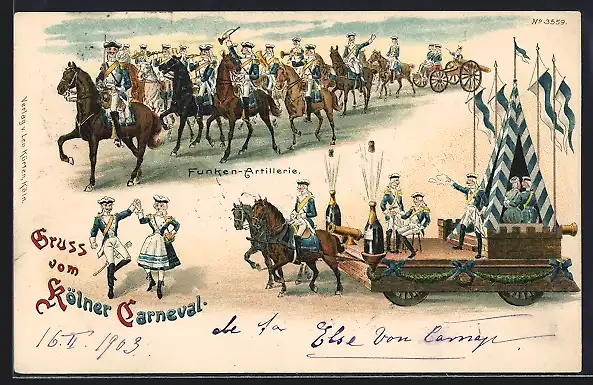 No 3559.
Verlag v. Leo Hürter, Köln.
Funken-Artillerie.
Gruss
vom
Kölner Carneval.
16. II. 1903.
Else von